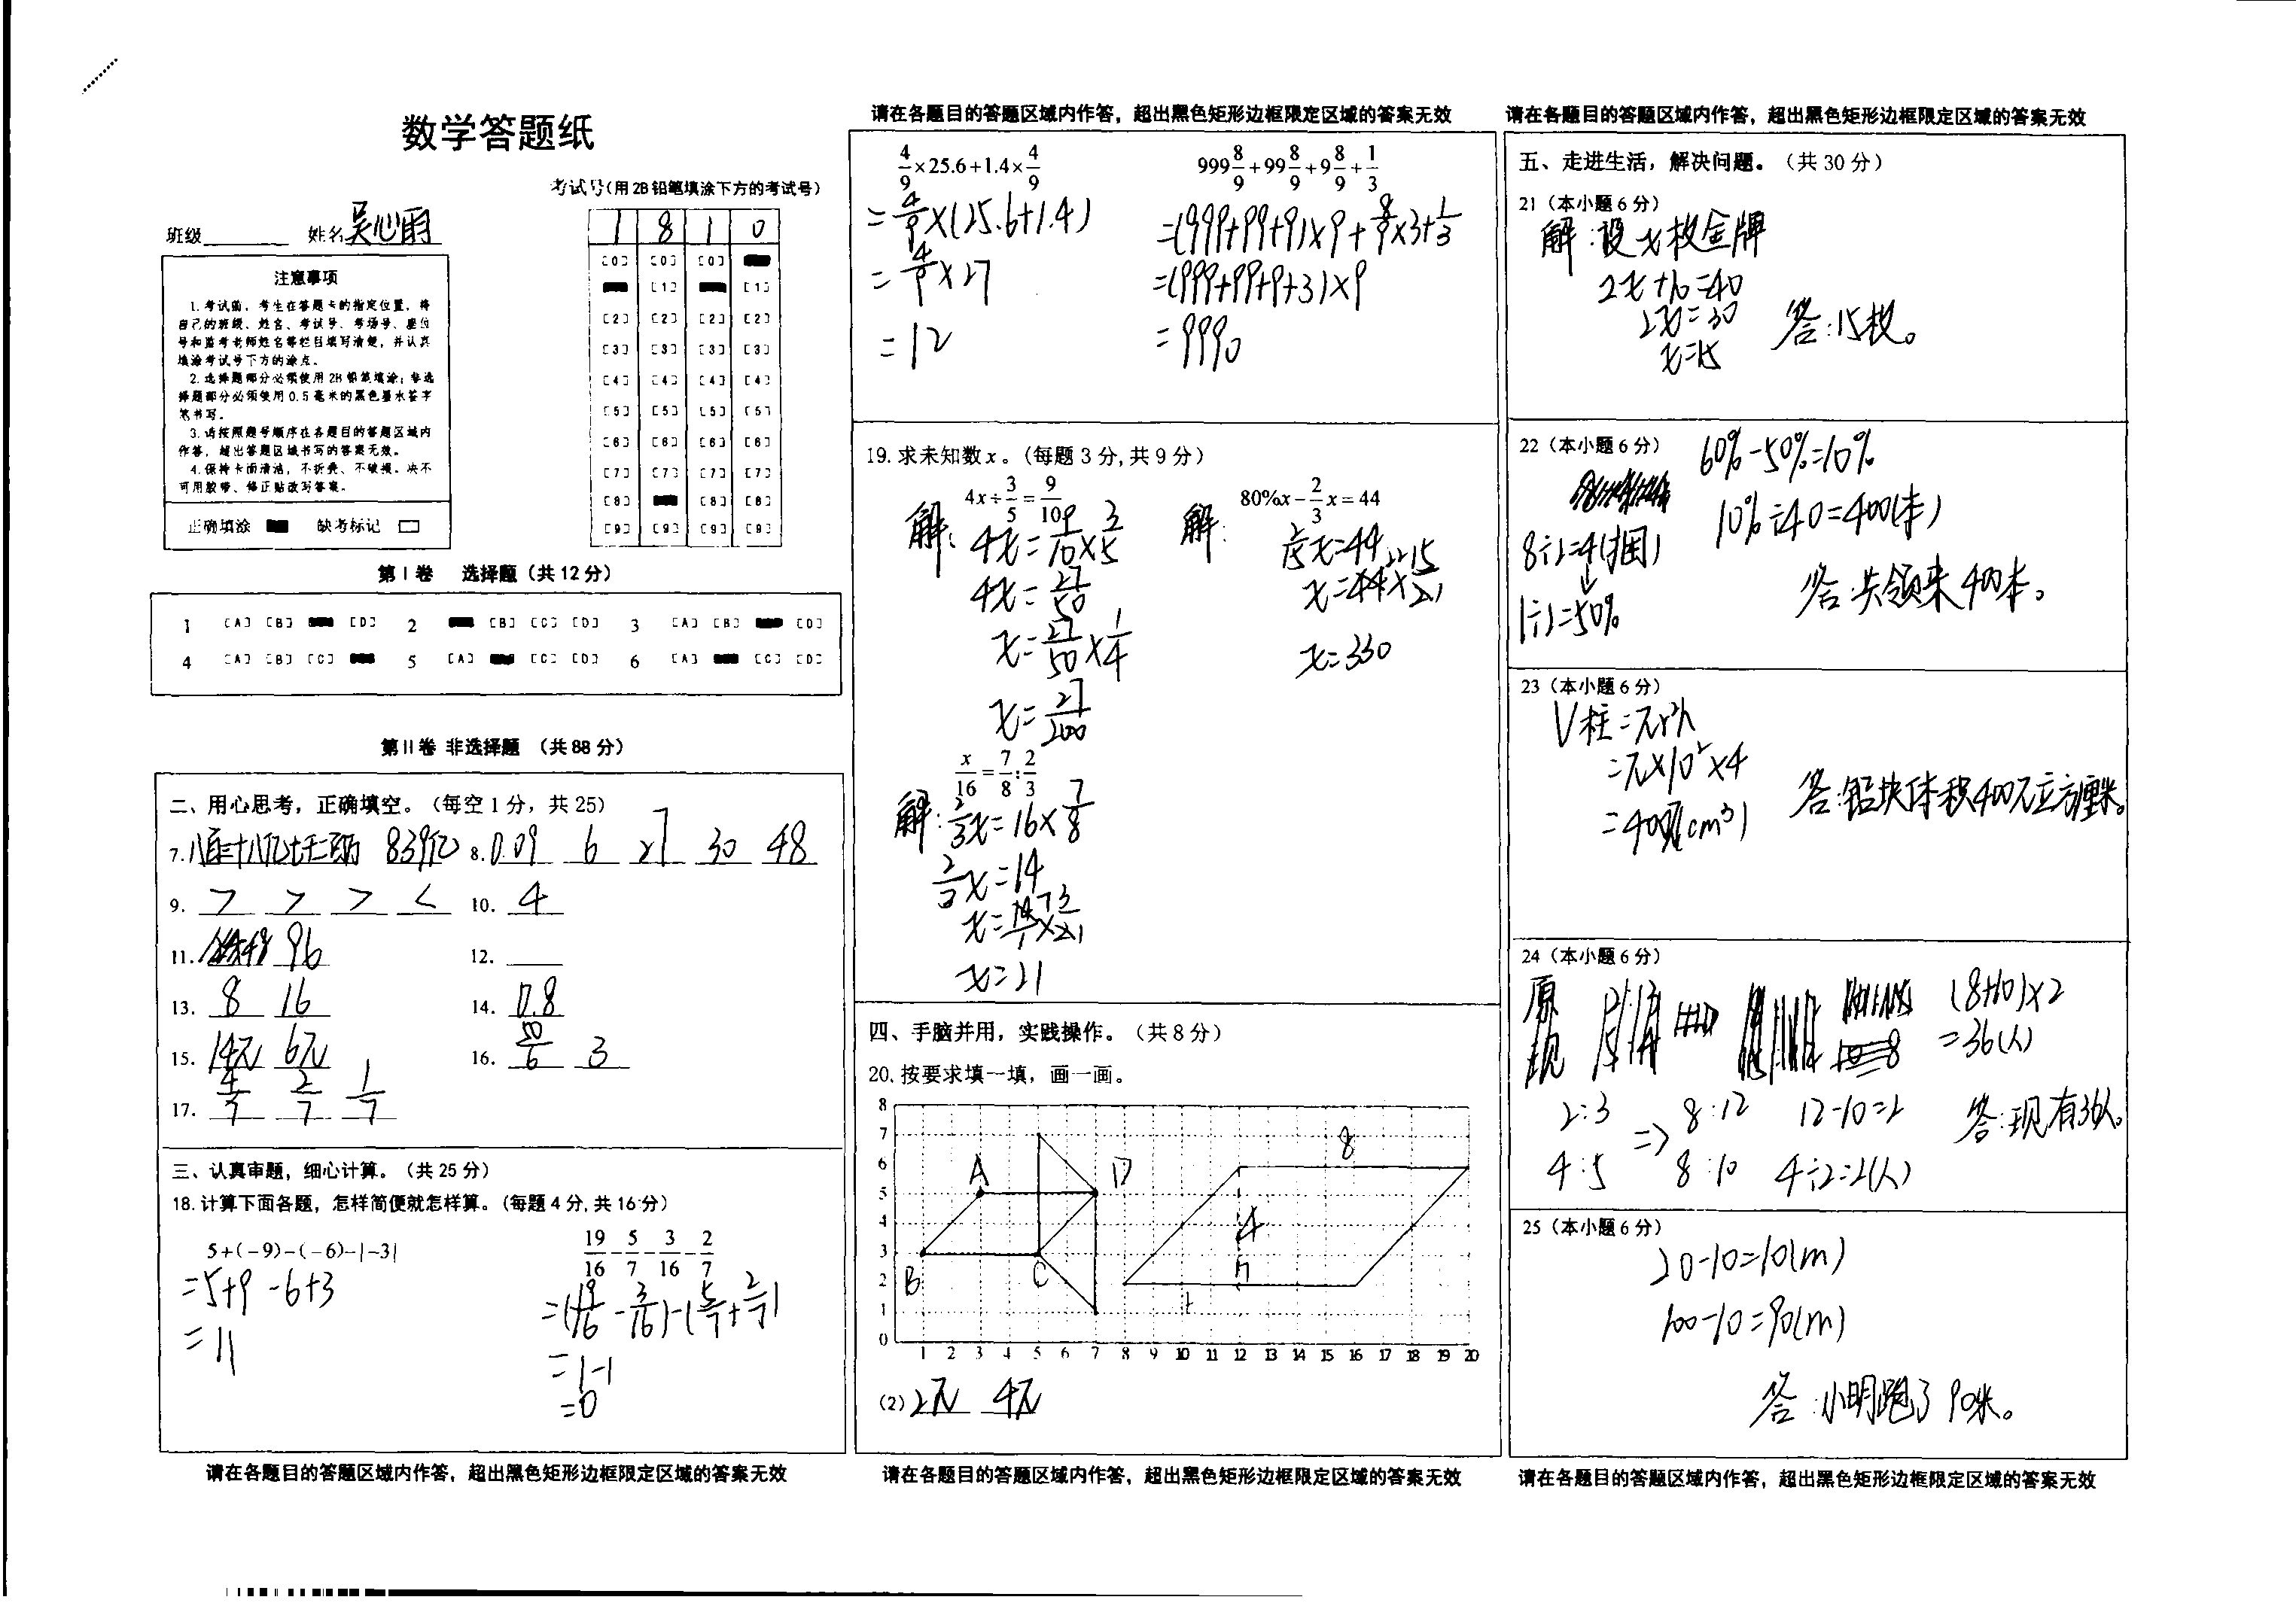 数学答题纸
考试号(用2B铅笔填涂下方的考试号)
班级 姓名 吴心雨
1 8 1 0
注意事项
1.考试前，考生在答题卡的指定位置，将
自己的班级、姓名、考试号、考场号、座位
号和监考老师姓名等栏目填写清楚，并认真
填涂考试号下方的涂点。
2.选择题部分必须使用2B铅笔填涂；非选
择题部分必须使用0.5毫米的黑色墨水签字
笔书写。
3.请按照题号顺序在各题目的答题区域内
作答，超出答题区域书写的答案无效。
4.保持卡面清洁，不折叠、不破损。决不
可用胶带、修正贴改写答案。
正确填涂 缺考标记
[0] [0] [0]
[1] [1]
[2] [2] [2] [2]
[3] [3] [3] [3]
[4] [4] [4] [4]
[5] [5] [5] [5]
[6] [6] [6] [6]
[7] [7] [7] [7]
[8] [8] [8]
[9] [9] [9] [9]
第Ⅰ卷 选择题（共12分）
1 [A] [B] [D] 2 [B] [C] [D] 3 [A] [B] [D]
4 [A] [B] [C] 5 [A] [C] [D] 6 [A] [C] [D]
第II卷 非选择题 （共88分）
二、用心思考，正确填空。（每空1分，共25）
7. 839亿 8. 0.09 6 27 30 48
9. > > > < 10. 4
11. 96 12.
13. 8 16 14. 0.8
15. 14π 6π 16. 50/6 3
17. 4/7 2/7 1/7
三、认真审题，细心计算。（共25分）
18.计算下面各题，怎样简便就怎样算。（每题4分,共16分）
5+(-9)-(-6)-|-3|
=5+9-6+3
=11
19/16-5/7-3/16-2/7
=(19/16-3/16)-(5/7+2/7)
=1-1
=0
请在各题目的答题区域内作答，超出黑色矩形边框限定区域的答案无效
请在各题目的答题区域内作答，超出黑色矩形边框限定区域的答案无效
4/9×25.6+1.4×4/9
=4/9×(25.6+1.4)
=4/9×27
=12
999 8/9+99 8/9+9 8/9+1/3
=(999+99+9)×9+8/9×3+1/3
=(999+99+9+3)×9
=9990
19.求未知数x。（每题3分,共9分）
4x÷3/5=9/10
解: 4x=9/10×3/5
4x=27/50
x=27/50×1/4
x=27/200
80%x-2/3x=44
解: 2/15x=44
x=44×15/2
x=330
x/16=7/8:2/3
解:2/3x=16×7/8
2/3x=14
x=14×3/2
x=21
四、手脑并用，实践操作。（共8分）
20.按要求填一填，画一画。
8
7
6
5
4
3
2
1
0
A D B C
8
4
1 2 3 4 5 6 7 8 9 10 11 12 13 14 15 16 17 18 19 20
(2) 2π 4π
请在各题目的答题区域内作答，超出黑色矩形边框限定区域的答案无效
请在各题目的答题区域内作答，超出黑色矩形边框限定区域的答案无效
五、走进生活，解决问题。（共30分）
21（本小题6分）
解:设x枚金牌
2x+10=40
2x=30
x=15
答:15枚。
22（本小题6分）
60%-50%=10%
8÷2=4(捆)
10%÷40=400(本)
1÷2=50%
答:共领来400本。
23（本小题6分）
V柱=πr²h
=π×10²×4
=400π(cm³)
答:铅块体积400π立方厘米。
24（本小题6分）
原
现
(8+10)×2
=36(人)
2:3 => 8:12 12-10=2
4:5 8:10 4÷2=2(人)
答:现有36人。
25（本小题6分）
20-10=10(m)
100-10=90(m)
答:小明跑了90米。
请在各题目的答题区域内作答，超出黑色矩形边框限定区域的答案无效